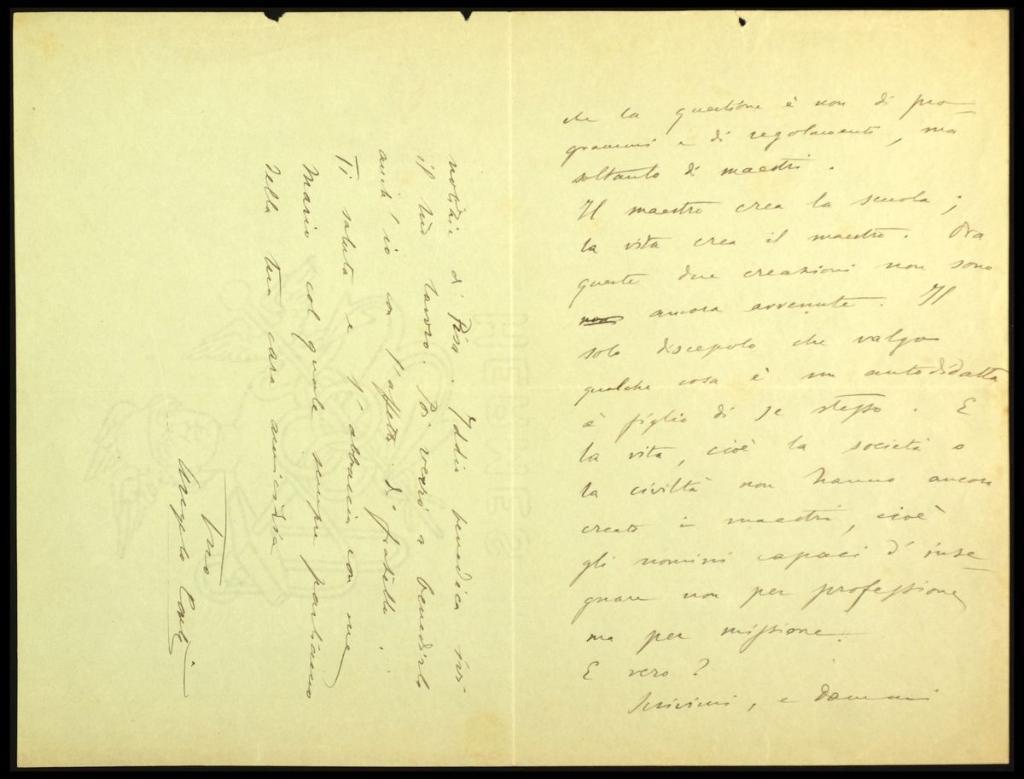 che la questione è non di pro-
grammi e di regolamento, ma
soltanto di maestri.
Il maestro crea la scuola;
la vita crea il maestro. Ora
queste due creazioni non sono
ancora avvenute. Il
solo discepolo che valga
qualche cosa è un autodidatta
è figlio di se stesso. E
la vita, cioè la società o
la civiltà non hanno ancora
creato i maestri, cioè
gli uomini capaci d'inse-
gnare non per professione
ma per missione.
E vero?
Scrivimi, e dammi
notizie di Pisa. Iddio benedica ivi
il tuo lavoro. Poi verrò a benedirlo
anch'io con l'affetto di fratello.
Ti saluta e t'abbraccia con me
Mario col quale sempre parliamo
della tua cara amicizia
Tuo
Angelo Conti
HERMES